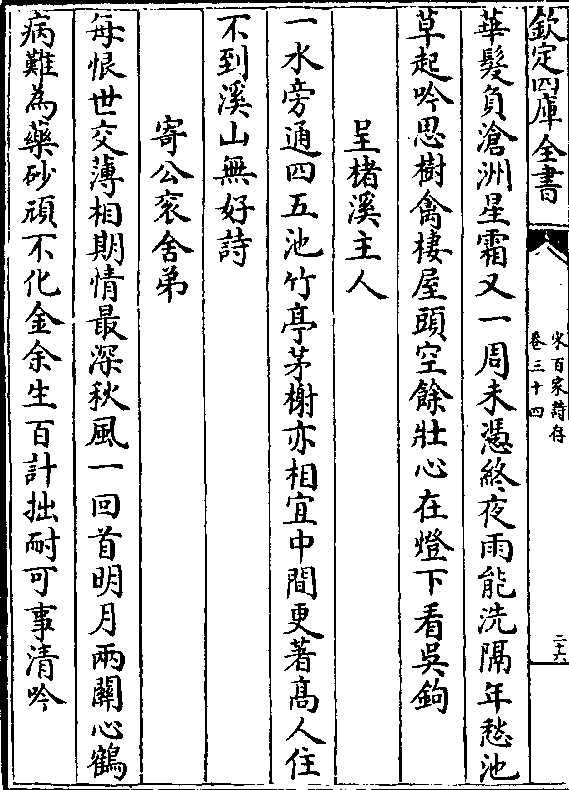 欽定四庫全書
宋百家詩存
卷三十四
二十六
華髮負滄洲星霜又一周未憑終夜雨能洗隔年愁池
草起吟思樹禽棲屋頭空餘壯心在燈下看吳鉤
呈楮溪主人
一水旁通四五池竹亭茅榭亦相宜中間更著高人住
不到溪山無好詩
寄公衮舍弟
每恨世交薄相期情最深秋風一回首明月兩關心鶴
病難為藥砂頑不化金余生百計拙耐可事清吟